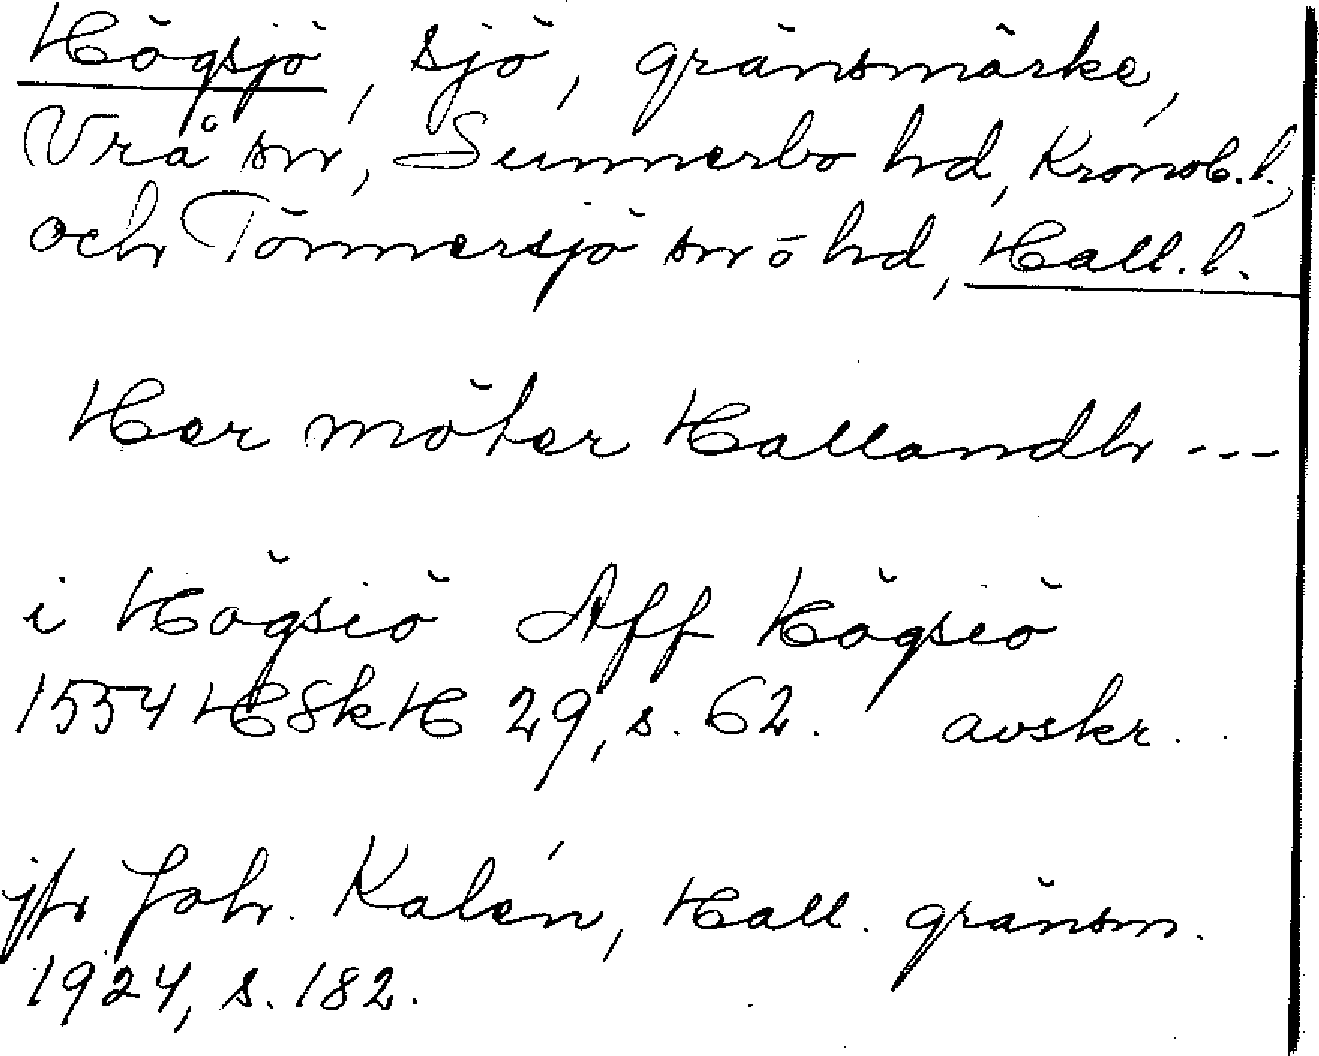 Högsjö, sjö, gränsmärke,
Vrå sn, Sunnerbo hd, Kronob.l.,
och Tönnersjö sn o hd, Hall.l.
Her möter Hallandh ---
i Högsiö Aff Högsiö
1554 HSkH 29, s. 62. avskr.
jfr Joh. Kalén, Hall. gränsm.
1924, s. 182.